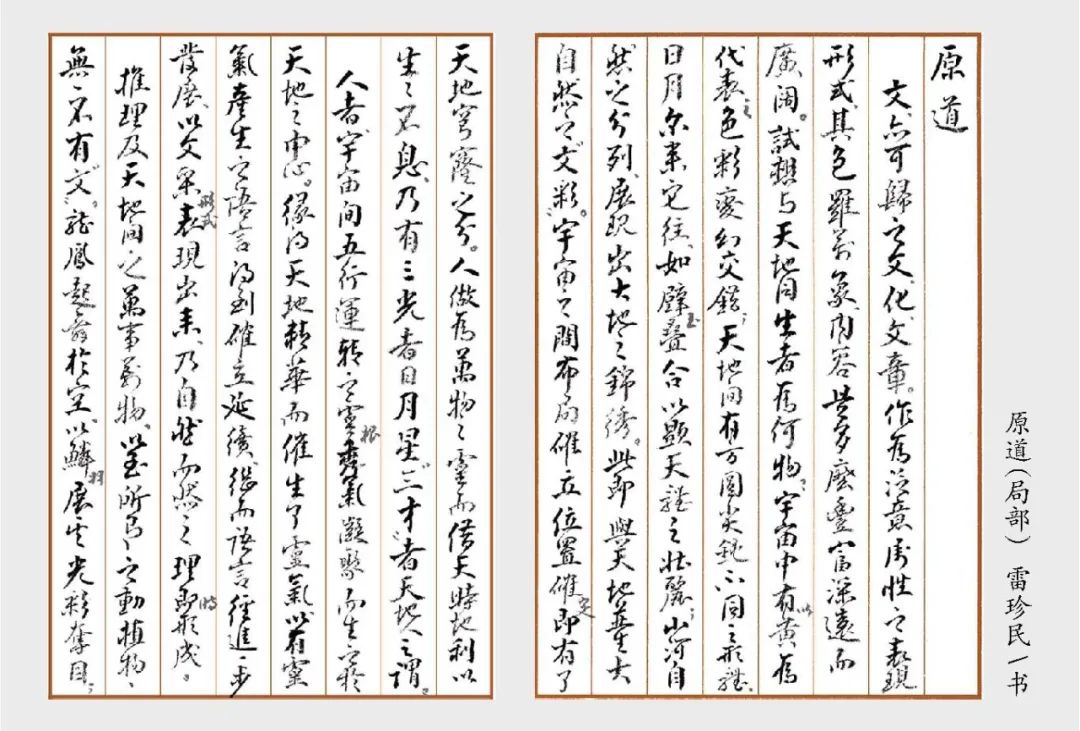 原道
文亦可歸之文化、文章。作為泛意屬性之表現
形式，其包羅萬象，內容是多麼豐富深遠而
廣闊。試想与天地同生者為何物，宇宙中有以黄為
代表之色彩變幻交錯，天地间有方圓尖鈍不同之形體。
日月尔来它往，如璧玉疊合以显天體之壮麗；山河自
然之分列，展現出大地之錦繡。此即與天地幷大
自然之"文"彩。宇宙之間布局確立位置確定即有了
天地穹窿之分。人做為萬物之靈而借天時地利以
生生不息，乃有三光者日月星，"三才"者天地人之謂。
人者，宇宙间五行運轉之靈根秀氣凝聚而生之於
天地之中心。缘得天地精華而催生了靈氣以有靈
氣產生之語言得到確立延續，继而語言径進一步
發展，以文采形式表現出来，乃自然而然之理即時形成。
推理及天地间之萬事萬物，以至所有之動植物，
無不有"文"。龍鳳起舞於空，以鱗羽展其光彩奪目；
原道（局部） 雷珍民 / 书